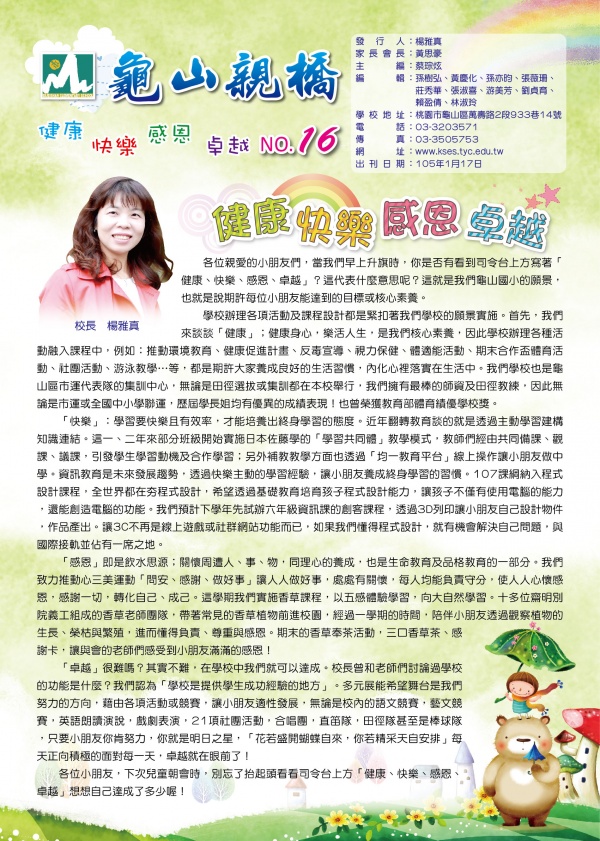 龜山親橋
健康 快樂 感恩 卓越 NO.16
發行人：楊雅真
家長會長：黃思豪
主編：蔡琮炫
編輯：孫樹弘、黃慶化、孫亦昀、張薇珊、
莊秀華、張淑喜、游美芳、劉貞育、
賴盈倩、林淑玲
學校地址：桃園市龜山區萬壽路2段933巷14號
電話：03-3203571
傳真：03-3505753
網址：www.kses.tyc.edu.tw
出刊日期：105年1月17日
健康 快樂 感恩 卓越
校長 楊雅真
各位親愛的小朋友們，當我們早上升旗時，你是否有看到司令台上方寫著「
健康、快樂、感恩、卓越」？這代表什麼意思呢？這就是我們龜山國小的願景，
也就是說期許每位小朋友能達到的目標或核心素養。
學校辦理各項活動及課程設計都是緊扣著我們學校的願景實施。首先，我們
來談談「健康」；健康身心，樂活人生，是我們核心素養，因此學校辦理各種活
動融入課程中，例如：推動環境教育、健康促進計畫、反毒宣導、視力保健、體適能活動、期末合作盃體育活
動、社團活動、游泳教學…等，都是期許大家養成良好的生活習慣，內化心裡落實在生活中。我們學校也是龜
山區市運代表隊的集訓中心，無論是田徑選拔或集訓都在本校舉行，我們擁有最棒的師資及田徑教練，因此無
論是市運或全國中小學聯運，歷屆學長姐均有優異的成績表現！也曾榮獲教育部體育績優學校獎。
「快樂」；學習要快樂且有效率，才能培養出終身學習的態度。近年翻轉教育談的就是透過主動學習建構
知識連結。這一、二年來部分班級開始實施日本佐藤學的「學習共同體」教學模式，教師們經由共同備課、觀
課、議課，引發學生學習動機及合作學習；另外補教教學方面也透過「均一教育平台」線上操作讓小朋友做中
學。資訊教育是未來發展趨勢，透過快樂主動的學習經驗，讓小朋友養成終身學習的習慣。107課綱納入程式
設計課程，全世界都在夯程式設計，希望透過基礎教育培育孩子程式設計能力，讓孩子不僅有使用電腦的能力
，還能創造電腦的功能。我們預計下學年先試辦六年級資訊課的創客課程，透過3D列印讓小朋友自己設計物件
，作品產出。讓3C不再是線上遊戲或社群網站功能而已，如果我們懂得程式設計，就有機會解決自己問題，與
國際接軌並佔有一席之地。
「感恩」即是飲水思源；關懷周遭人、事、物，同理心的養成，也是生命教育及品格教育的一部分。我們
致力推動心三美運動「問安、感謝、做好事」讓人人做好事，處處有關懷，每人均能負責守分，使人人心懷感
恩，感謝一切，轉化自己、成己。這學期我們實施香草課程，以五感體驗學習，向大自然學習。十多位齋明別
院義工組成的香草老師團隊，帶著常見的香草植物前進校園，經過一學期的時間，陪伴小朋友透過觀察植物的
生長、榮枯與繁殖，進而懂得負責、尊重與感恩。期末的香草奉茶活動，三口香草茶、感
謝卡，讓與會的老師們感受到小朋友滿滿的感恩！
「卓越」很難嗎？其實不難，在學校中我們就可以達成。校長曾和老師們討論過學校
的功能是什麼？我們認為「學校是提供學生成功經驗的地方」。多元展能希望舞台是我們
努力的方向，藉由各項活動或競賽，讓小朋友適性發展，無論是校內的語文競賽，藝文競
賽，英語朗讀演說，戲劇表演，21項社團活動，合唱團，直笛隊，田徑隊甚至是棒球隊
，只要小朋友你肯努力，你就是明日之星，「花若盛開蝴蝶自來，你若精采天自安排」每
天正向積極的面對每一天，卓越就在眼前了！
各位小朋友，下次兒童朝會時，別忘了抬起頭看看司令台上方「健康、快樂、感恩、
卓越」想想自己達成了多少喔！